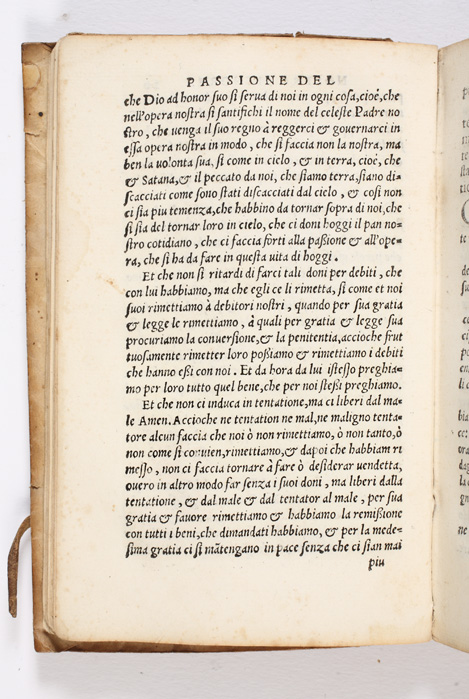 PASSIONE DEL
che Dio ad honor suo si serua di noi in ogni cosa, cioé, che
nell'opera nostra si santifichi il nome del celeste Padre no
stro, che uenga il suo regno à reggerci & gouernarci in
essa opera nostra in modo, che si faccia non la nostra, ma
ben la uolonta sua, si come in cielo, & in terra, cioè, che
& Satana, & il peccato da noi, che siamo terra, siano di=
scacciati come sono stati discacciati dal cielo, & cosi non
ci sia piu temenza, che habbino da tornar sopra di noi, che
si sia del tornar loro in cielo, che ci doni hoggi il pan no=
stro cotidiano, che ci faccia forti alla passione & all'ope=
ra, che si ha da fare in questa uita di hoggi.
Et che non si ritardi di farci tali doni per debiti, che
con lui habbiamo, ma che egli ce li rimetta, si come et noi
suoi rimettiamo à debitori nostri, quando per sua gratia
& legge le rimettiamo, à quali per gratia & legge sua
procuriamo la conuersione, & la penitentia, accioche frut
tuosamente rimetter loro possiamo & rimettiamo i debiti
che hanno essi con noi. Et da hora da lui istesso preghia=
mo per loro tutto quel bene, che per noi stessi preghiamo.
Et che non ci induca in tentatione, ma ci liberi dal ma=
le Amen. Accioche ne tentation ne mal, ne maligno tenta=
tore alcun faccia che noi ò non rimettiamo, ò non tanto, ò
non come si conuien, rimettiamo, & dapoi che habbiam ri
messo, non ci faccia tornare à fare ò desiderar uendetta,
ouero in altro modo far senza i suoi doni, ma liberi dalla
tentatione, & dal male & dal tentator al male, per sua
gratia & fauore rimettiamo & habbiamo la remissione
con tutti i beni, che dimandati habbiamo, & per la mede=
sima gratia ci si mãtengano in pace senza che ci sian mai
piu